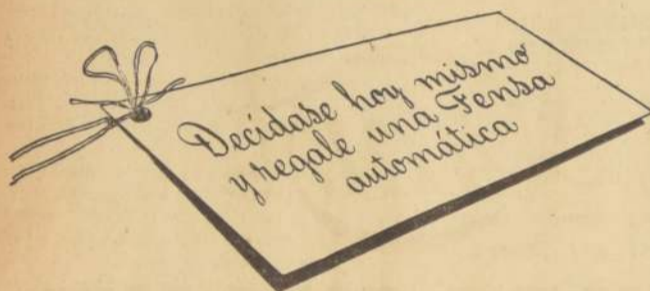 Decídase hoy mismo
y regale una Fensa
automática